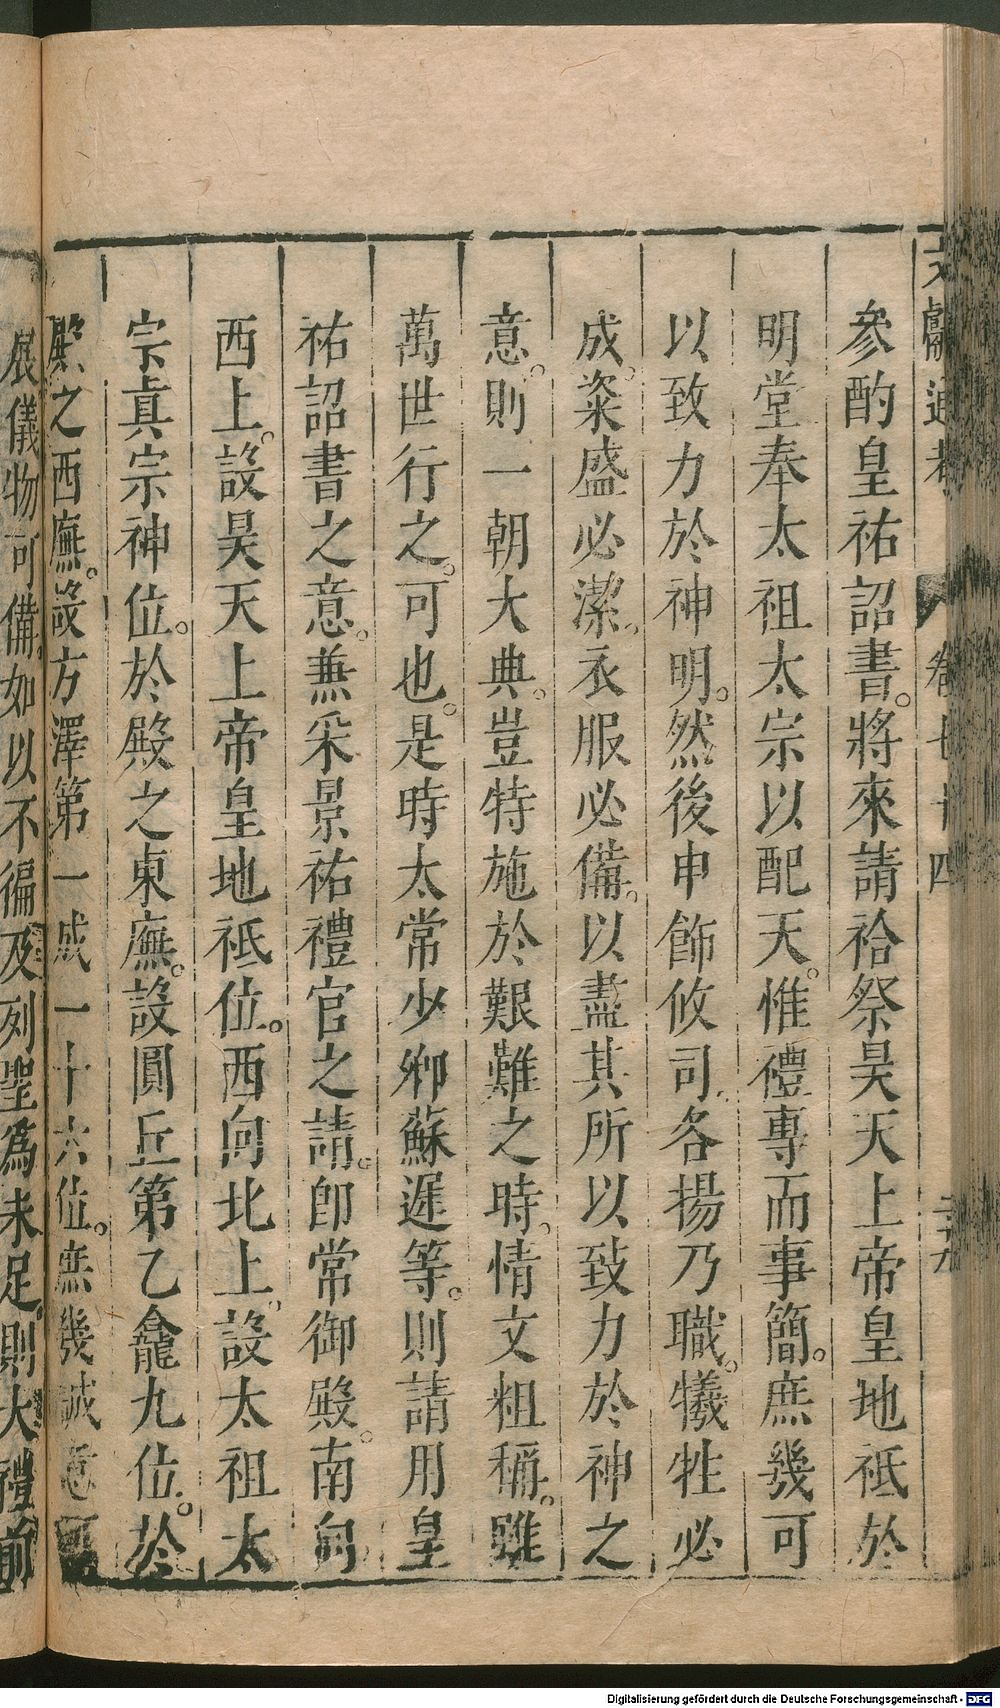 文獻通考 卷七十四
參酌皇祐詔書。將來請祫祭昊天上帝皇地祇於
明堂奉太祖太宗以配天。惟禮專而事簡。庶幾可
以致力於神明。然後申飭攸司、各揚乃職。犧牲必
成。粢盛必潔。衣服必備。以盡其所以致力於神之
意。則一朝大典。豈特施於艱難之時。情文粗稱。雖
萬世行之。可也。是時太常少卿蘇遲等。則請用皇
祐詔書之意。兼采景祐禮官之請。即常御殿。南向
西上。設昊天上帝皇地祇位。西向北上、設太祖太
宗真宗神位。於殿之東廡。設圓丘第乙龕九位。於
殿之西廡。設方澤第一成一十六位。庶幾誠意可
展儀物可備。如以不徧及列聖為未足。則大禮前
Digitalisierung gefördert durch die Deutsche Forschungsgemeinschaft - DFG